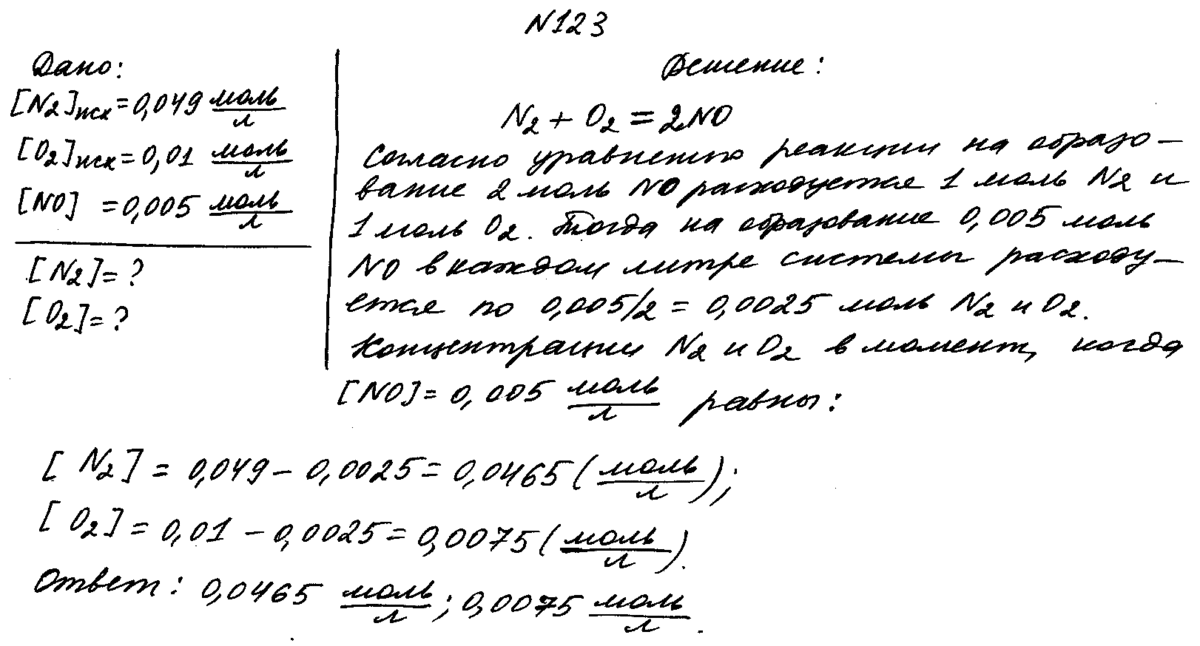 N123
Дано:
[N₂]исх = 0,049 моль/л
[O₂]исх = 0,01 моль/л
[NO] = 0,005 моль/л
[N₂] = ?
[O₂] = ?
Решение:
N₂ + O₂ = 2NO
Согласно уравнению реакции на образо–
вание 2 моль NO расходуется 1 моль N₂ и
1 моль O₂. Тогда на образование 0,005 моль
NO в каждом литре системы расходу–
ется по 0,005/2 = 0,0025 моль N₂ и O₂.
Концентрации N₂ и O₂ в момент, когда
[NO] = 0,005 моль/л равны:
[N₂] = 0,049 – 0,0025 = 0,0465 (моль/л);
[O₂] = 0,01 – 0,0025 = 0,0075 (моль/л).
Ответ: 0,0465 моль/л; 0,0075 моль/л.